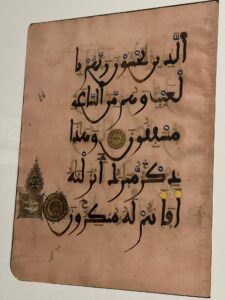 الَّذِينَ يَخْشَوْنَ رَبَّهُم بِا
لْغَيْبِ وَهُم مِّنَ السَّاعَةِ
مُشْفِقُونَ وَهَذَا
ذِكْرٌ مُّبَرَكٌ أَنزَلْنَهُ
أَفَأَنتُمْ لَهُ مُنكِرُونَ